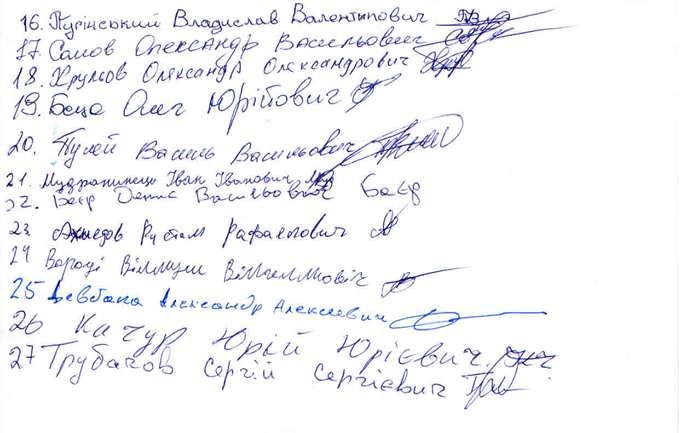 16. Пусінський Владислав Валентинович
17. Сомов Олександр Васильович
18. Хрумов Олександр Олександрович
19. Беца Олег Юрійович
20. Пулей Василь Васильович
21. Іван Іванович
22. Беєр Денис Васильович Беєр
23 Ахмедов Рустам Рафаелович
24 Вароді Вілмош
25 Александр Алексеевич
26 Качур Юрій Юрієвич.
27 Трубачов Сергій Сергієвич